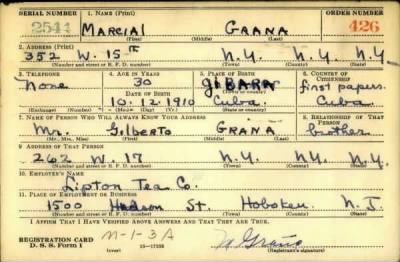 SERIAL NUMBER 1. NAME (Print) ORDER NUMBER
2544 MARCIAL GRANA 426
(First) (Middle) (Last)
2. ADDRESS (Print)
352 W. 15th N.Y. N.Y. N.Y
(Number and street or R. F. D. number) (Town) (County) (State)
3. TELEPHONE 4. AGE IN YEARS 5. PLACE OF BIRTH 6. COUNTRY OF CITIZENSHIP
None 30 GIBARA first papers.
DATE OF BIRTH (Town or county)
10.12.1910 Cuba. Cuba.
(Exchange) (Number) (Mo.) (Day) (Yr.) (State or country)
7. NAME OF PERSON WHO WILL ALWAYS KNOW YOUR ADDRESS 8. RELATIONSHIP OF THAT PERSON
Mr. Gilberto GRANA brother
(Mr., Mrs., Miss) (First) (Middle) (Last)
9. ADDRESS OF THAT PERSON
262 W. 17 N.Y. N.Y. N.Y.
(Number and street or R. F. D. number) (Town) (County) (State)
10. EMPLOYER'S NAME
Lipton Tea Co.
11. PLACE OF EMPLOYMENT OR BUSINESS
1500 Hudson St. Hoboken N. J.
(Number and street or R. F. D. number) (Town) (County) (State)
I AFFIRM THAT I HAVE VERIFIED ABOVE ANSWERS AND THAT THEY ARE TRUE.
REGISTRATION CARD M-1-3A
D. S. S. Form 1 (over) 16-17105 (Registrant's signature)